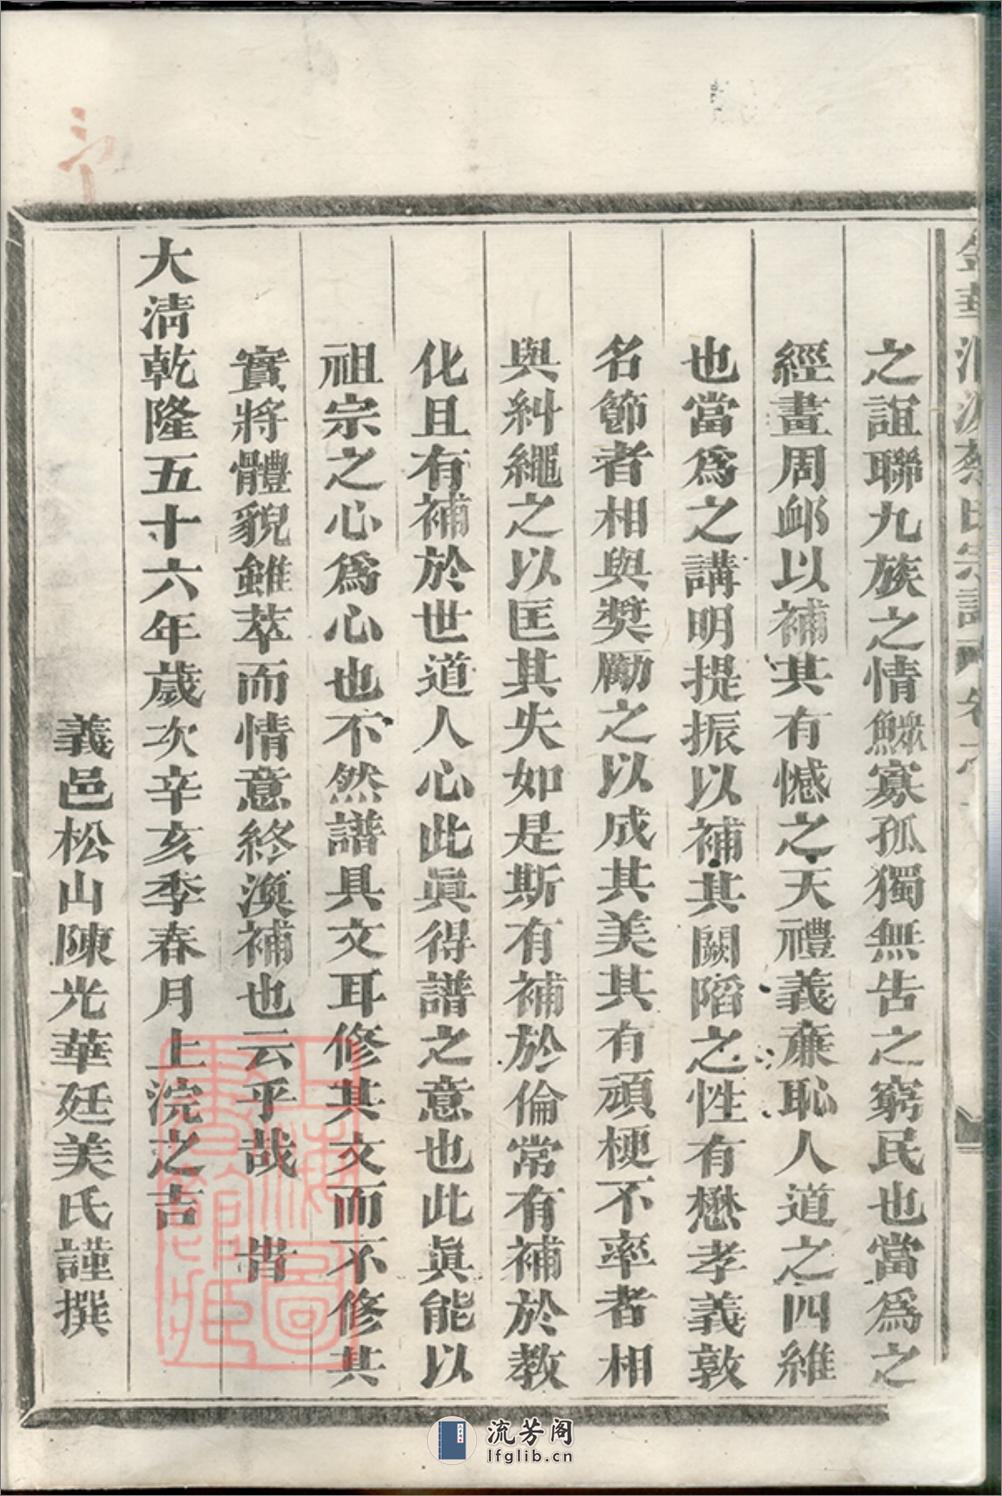 之誼聯九族之情鰥寡孤獨無告之窮民也當爲之
經畫周卹以補其有憾之天禮義廉恥人道之四維
也當爲之講明提振以補其闕陷之性有懋孝義敦
名節者相與獎勵之以成其美其有頑梗不率者相
與糾繩之以匡其失如是斯有補於倫常有補於教
化且有補於世道人心此眞得譜之意也此眞能以
祖宗之心爲心也不然譜具文耳修其文而不修其
實將體貌雖萃而情意終渙補也云乎哉 旹
大清乾隆五十六年歲次辛亥季春月上浣之吉
義邑松山陳光華廷美氏謹撰
上海圖書館藏
流芳阁
lfglib.cn